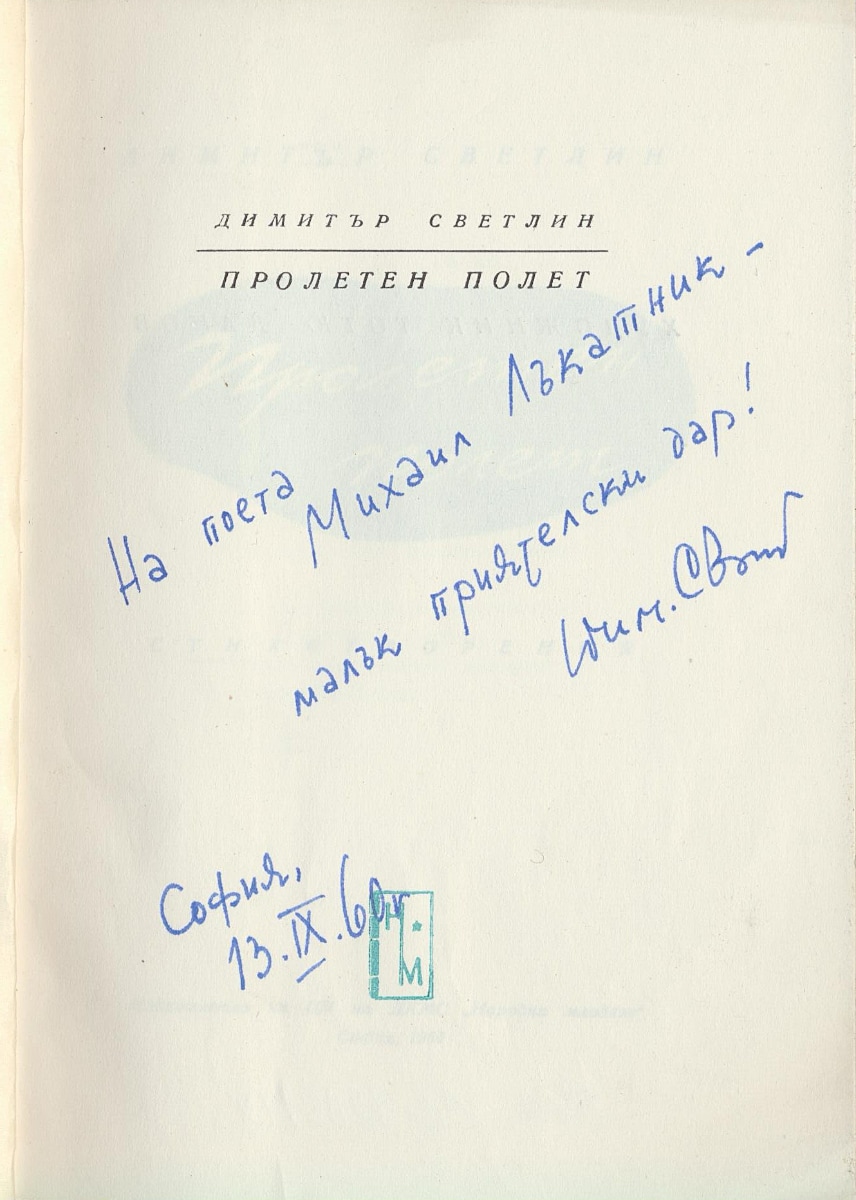 ДИМИТЪР СВЕТЛИН
ПРОЛЕТЕН ПОЛЕТ
На поета
Михаил Лъкатник –
малък приятелски дар!
Дим. Свет
София,
13.IX.60 г
Н
М